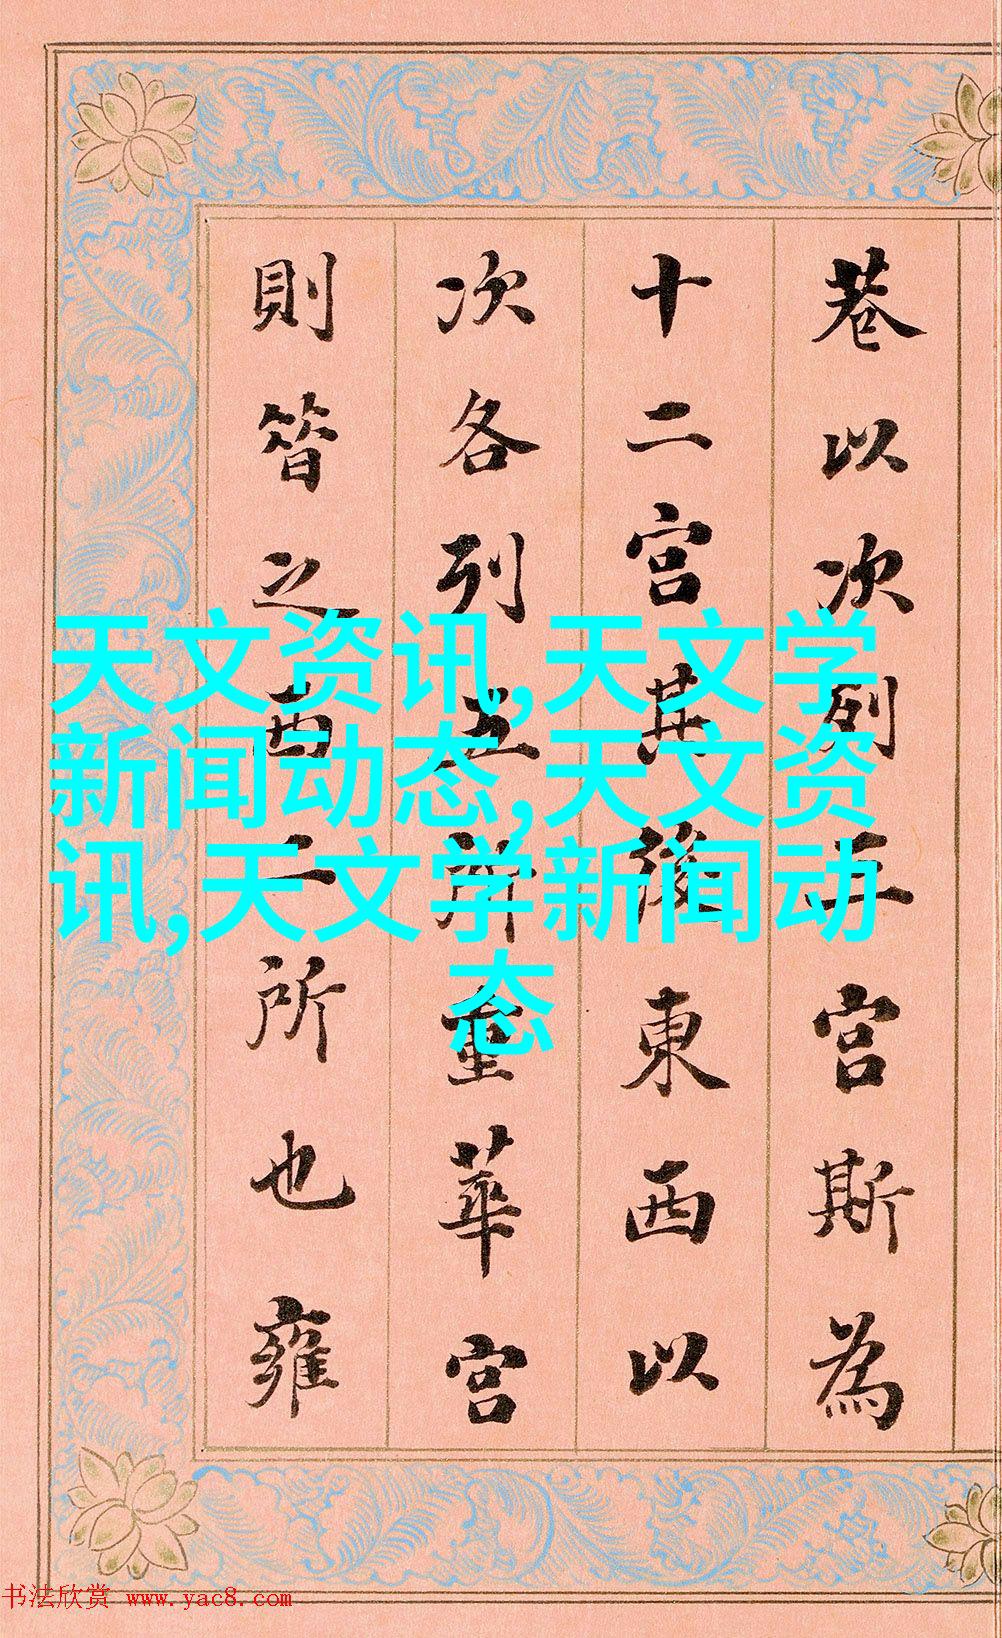 巷以次列三宮斯為
十二宮其後東西以
次各列五所重華宮
則之西二所也雍
天文资讯,天文学
新闻动态,天文资
讯,天文学新闻动
态
书法欣赏 www.yac8.com